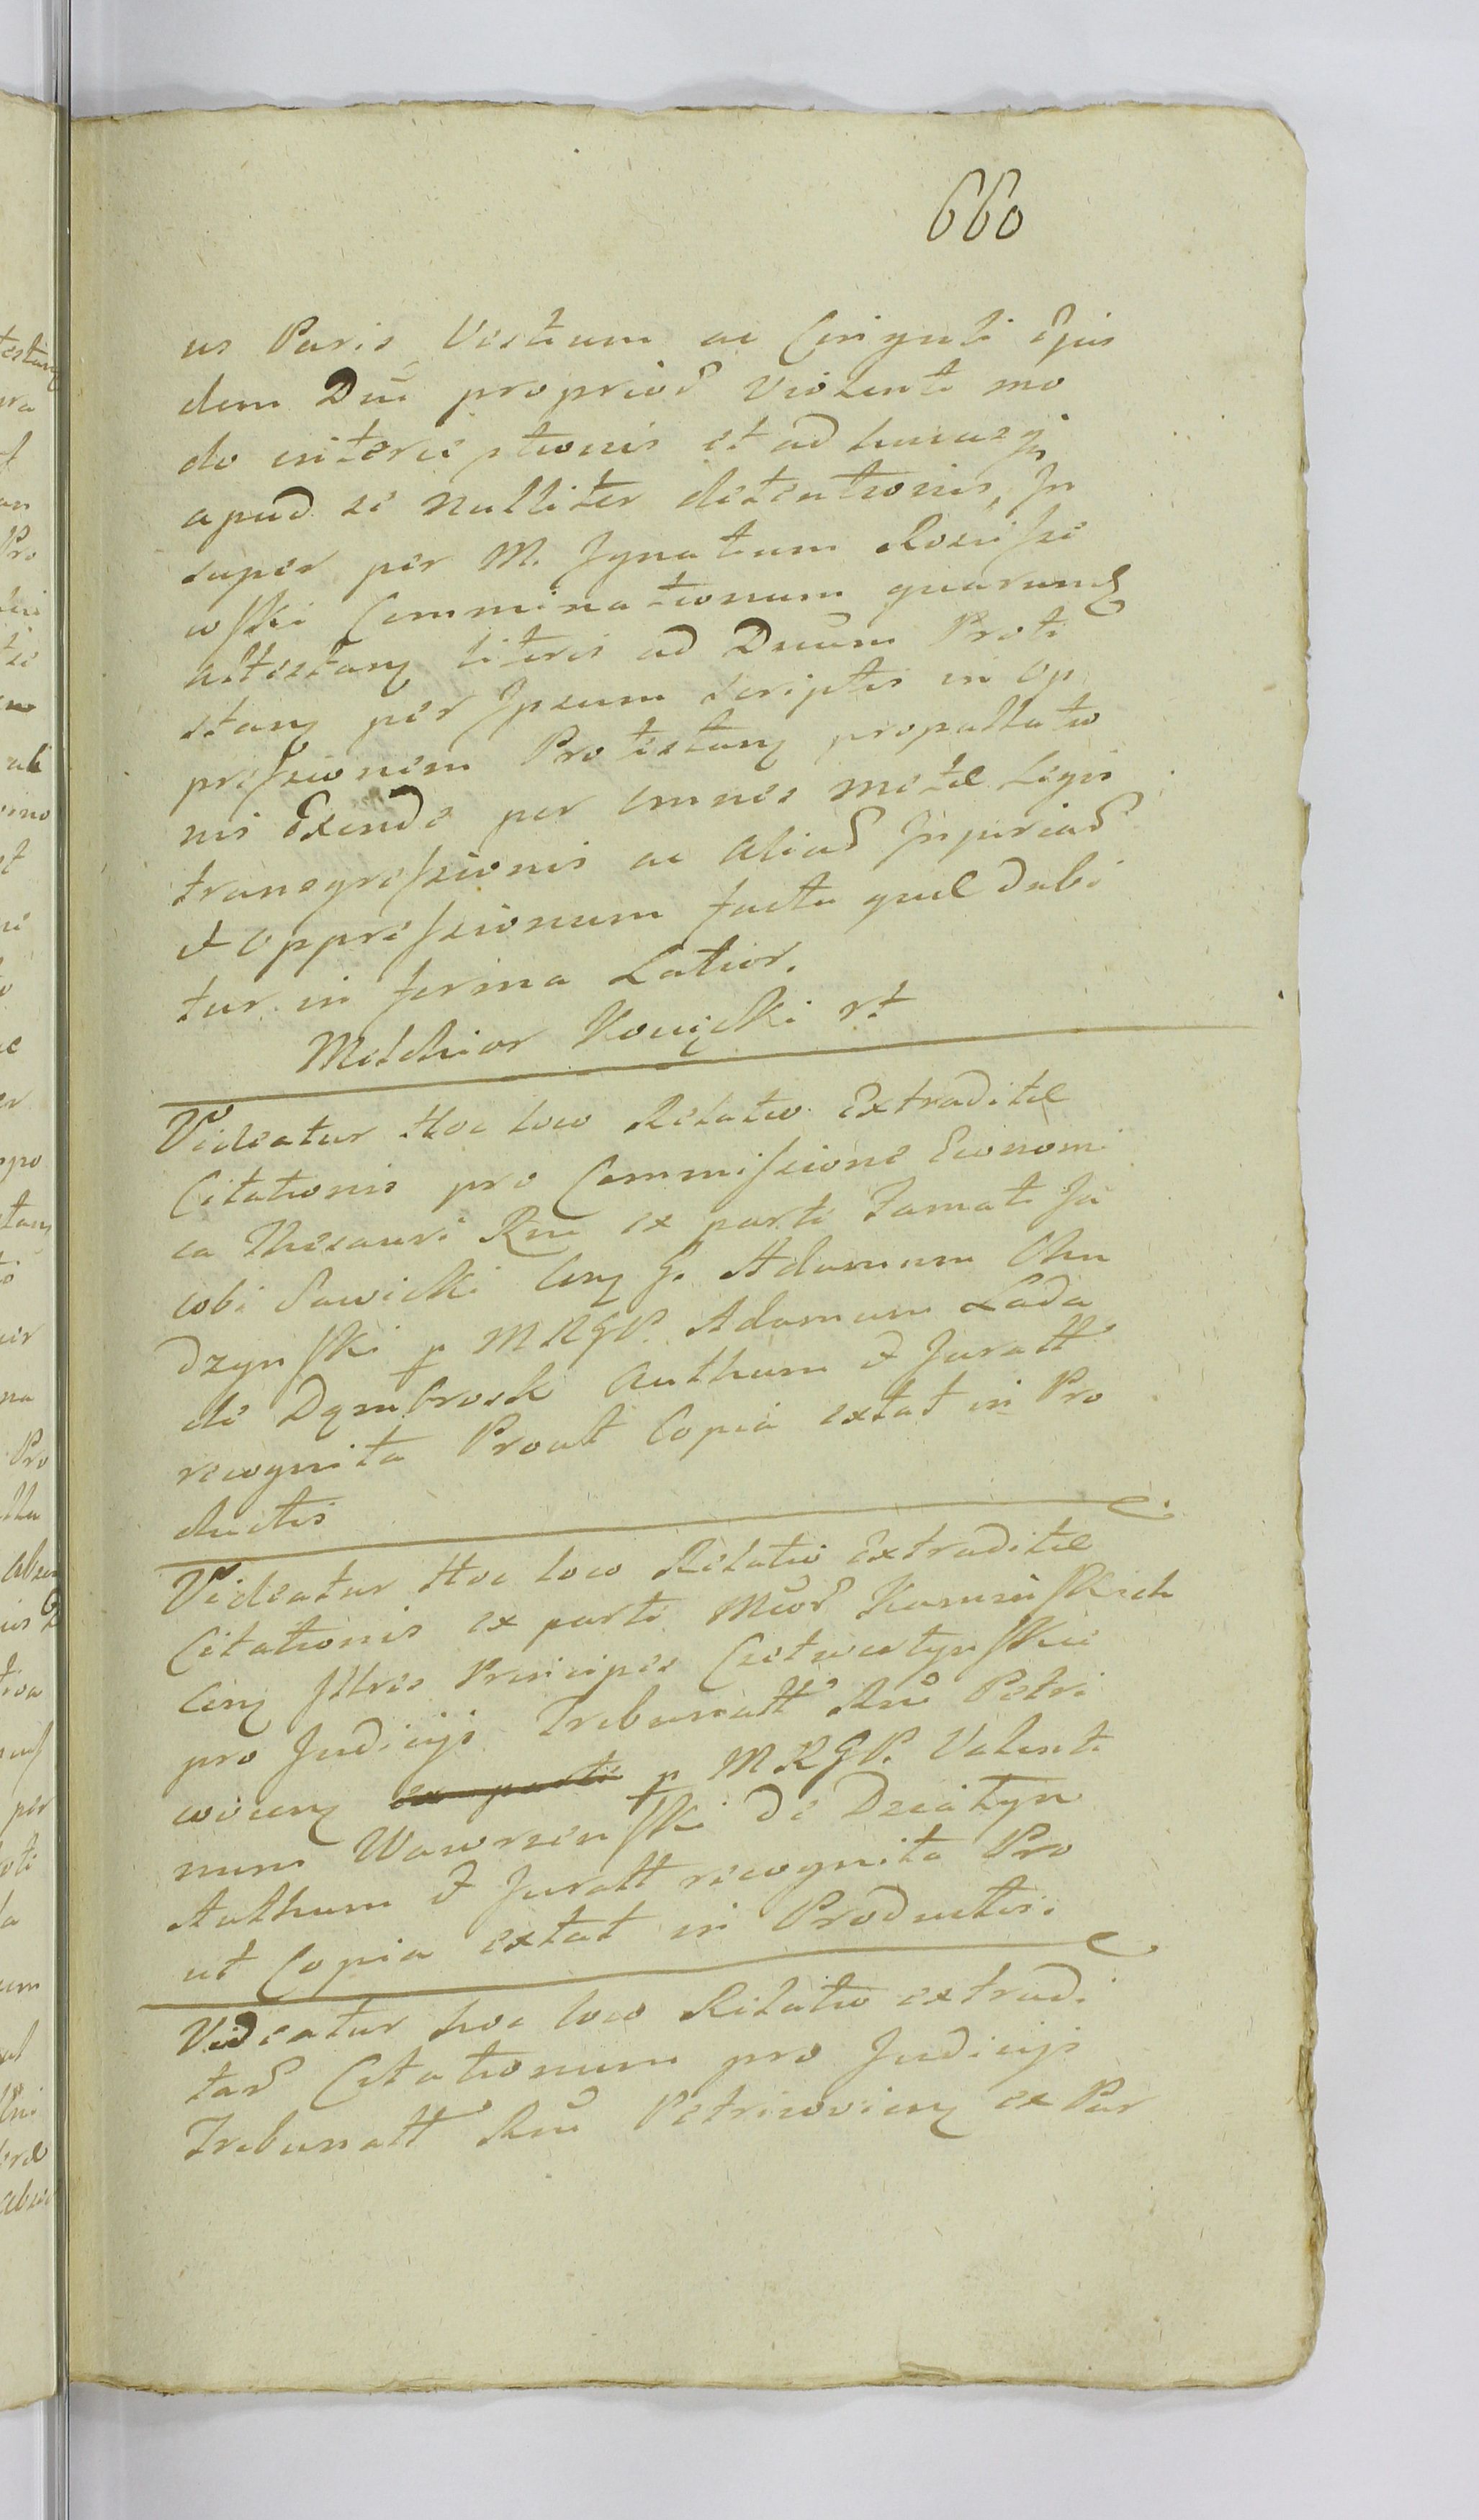 660
us Paris Vestium ac Cinguli Ejus
dem Dni proprior violento mo
do interceptionis et ad hucusq
apud se nulliter detentionis, In
super per M. Ignatium
wski Comminationum quarumq
attestan literis ad Dnum Prote
stan per Ipsum scriptis in op
pressionem Protestan propallatio
nis Exinde per omnes metae Legis
transgressionis ac aliar Injuriar
et oppressionum facta quae dabi
tur in forma Latior.
Melchior Kownacki rt
Videatur Hoc loco Relatio Extraditae
Citationis pro Commissione Economi
ca Thesauri Rni ex parte Famati Ja
cobi Sawicki Con G. Adamum Chu
dzynski p MRGP. Adamum Lada
de Dąmbrosk Authum et Juratt
recognita Prout Copia extat in Pro
ductis
Videatur Hoc loco Relatio Extraditae
Citationis ex parte Mcor Kaminskich
Con Illres Principes Czetwertynskie
pro Judicijs Tribunatt Rni Petri
covien ex parte p MRGP. Valenti
num Wawrzenski de Dziatyn
Authum et Juratt recognita Pro
ut Copia extat in Productis.
Videatur hoc loco Relatio extradi
tar Citationum pro Judicijs
Tribunatt Rni Petricovien ex Par